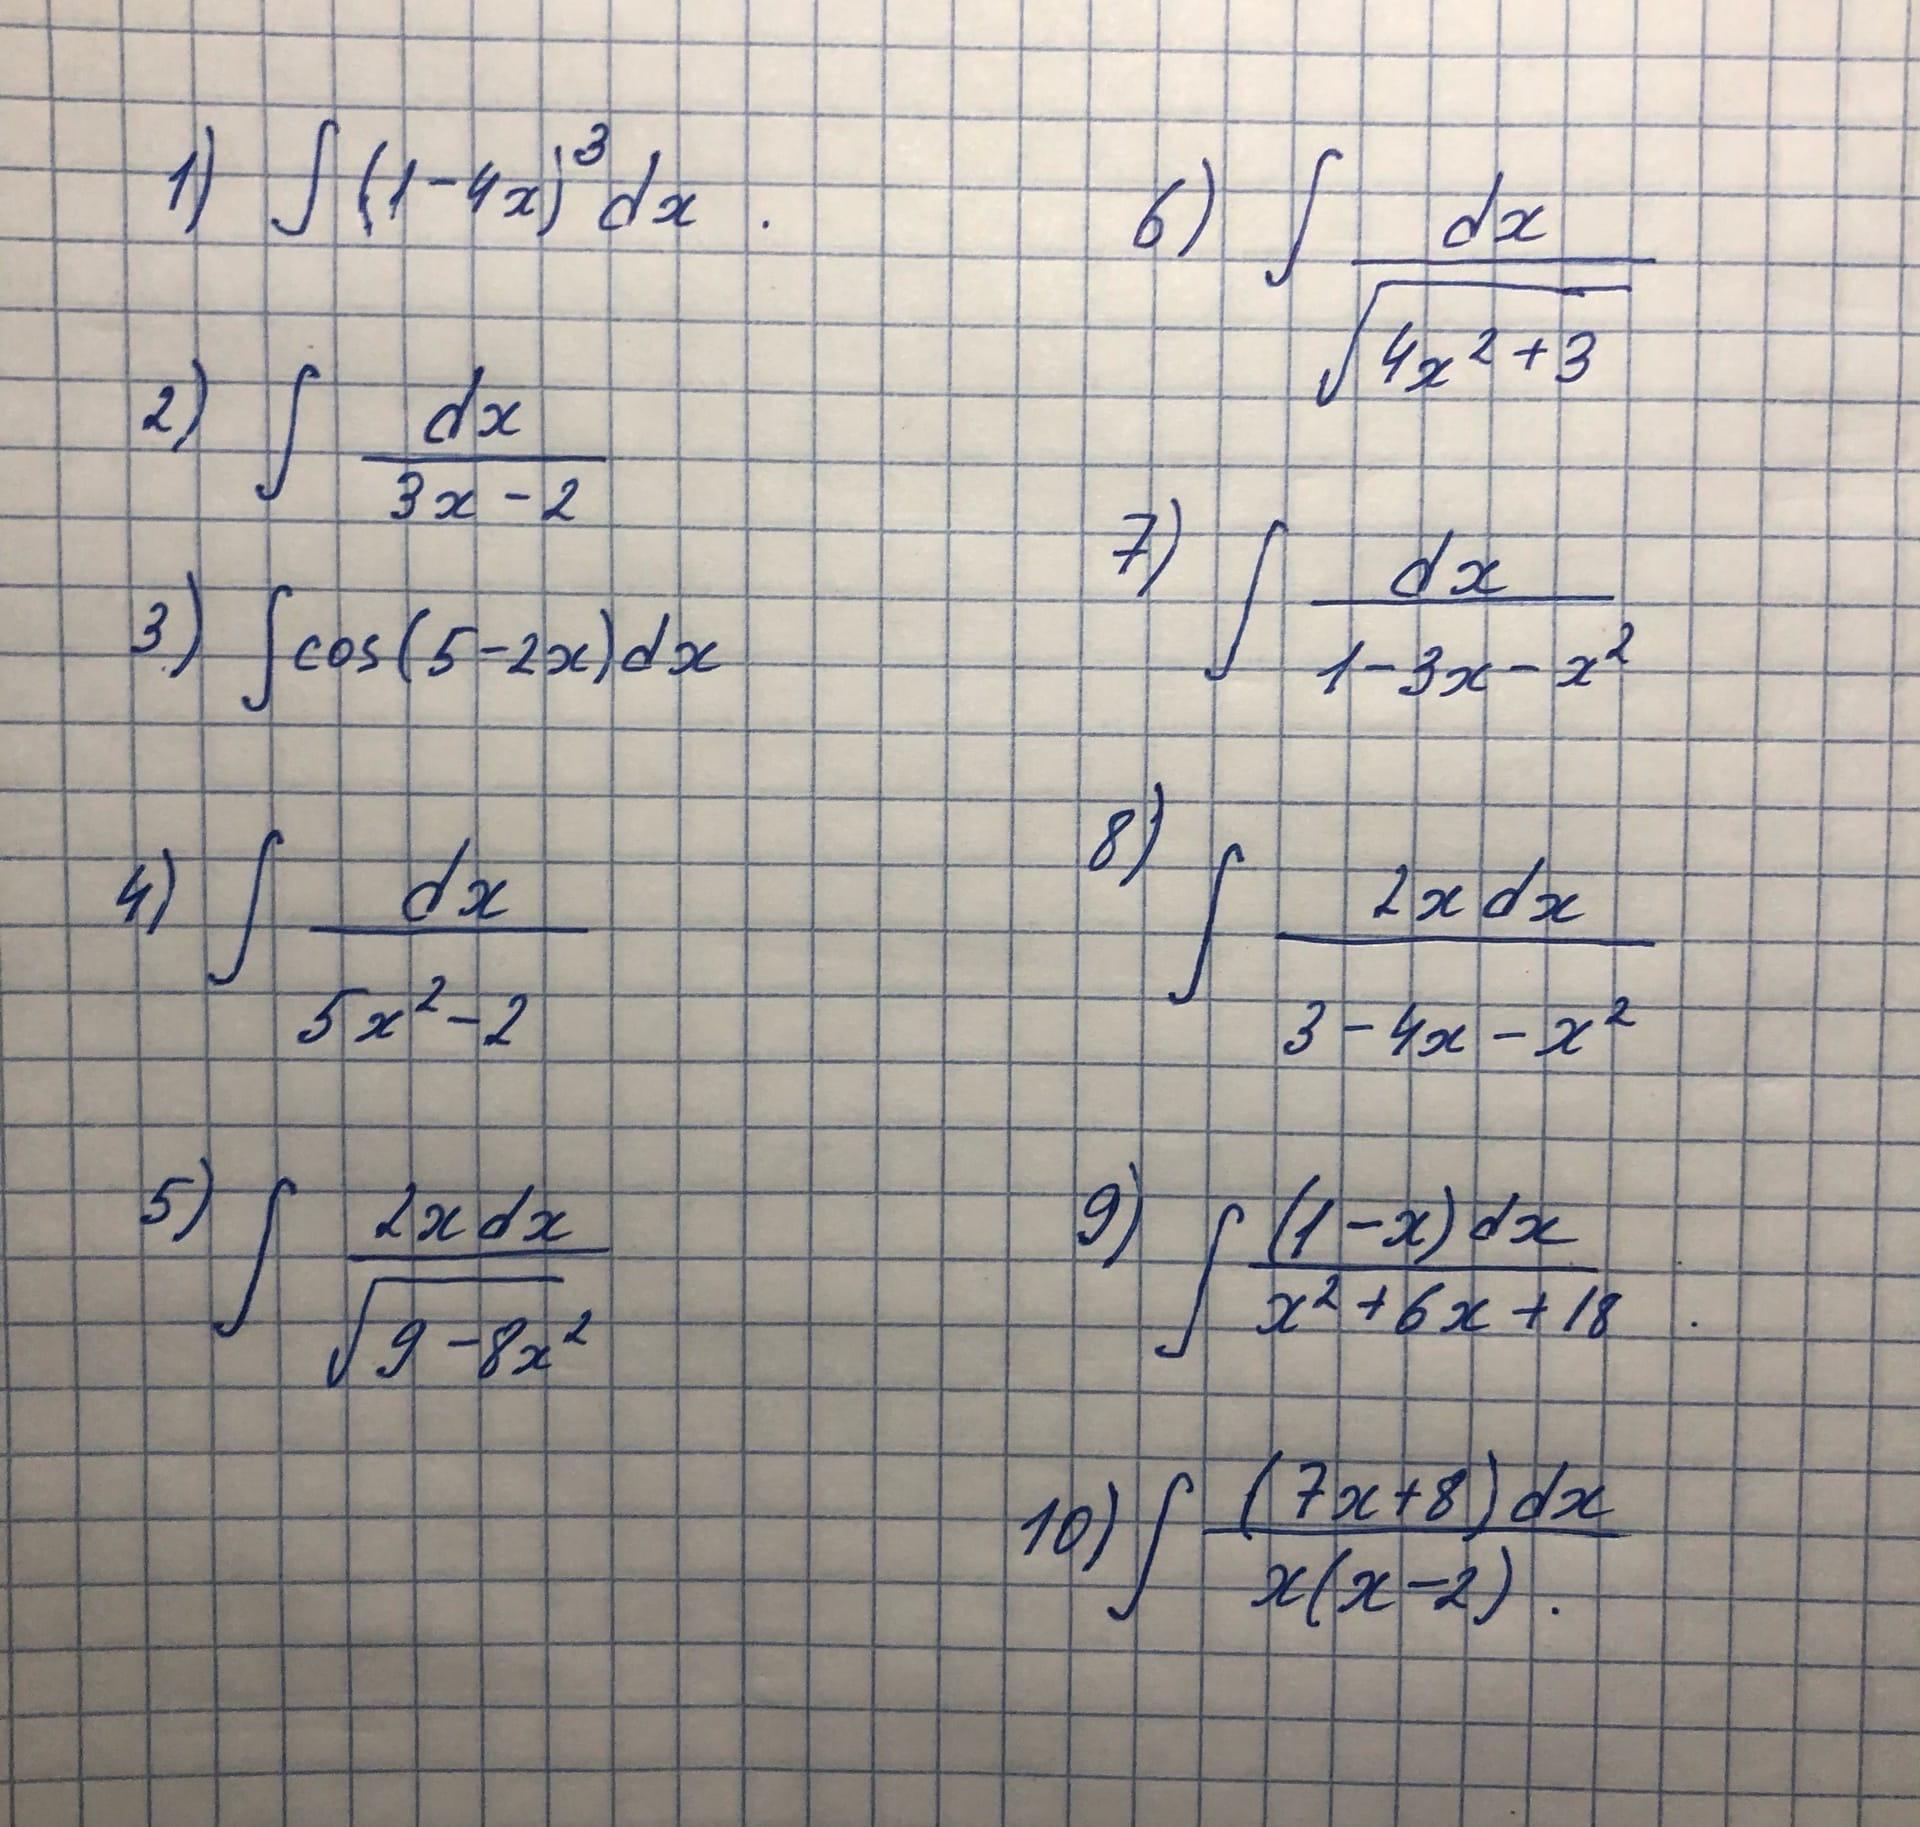 1) ∫(1-4x)³dx .
2) ∫ dx / (3x-2)
3) ∫cos(5-2x)dx
4) ∫ dx / (5x²-2)
5) ∫ 2xdx / √(9-8x²)
6) ∫ dx / √(4x²+3)
7) ∫ dx / (1-3x-x²)
8) ∫ 2xdx / (3-4x-x²)
9) ∫ (1-x)dx / (x²+6x+18) .
10) ∫ (7x+8)dx / x(x-2) .